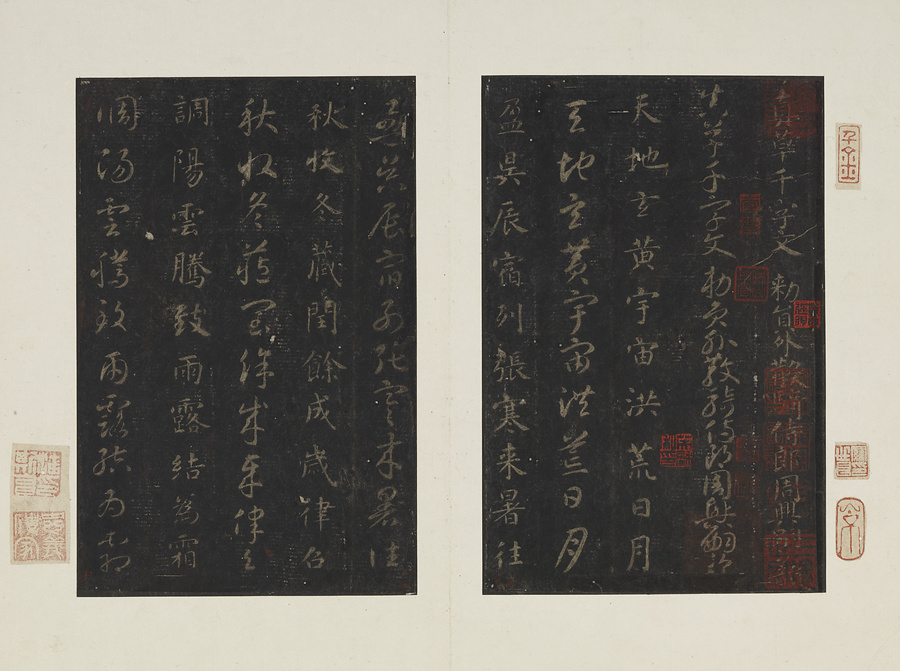 真草千字文 勅員外散騎侍郎周興嗣
真草千字文勅員外散騎侍郎周興嗣
天地玄黄宇宙洪荒日月
天地玄黄宇宙洪荒日月
盈昃辰宿列張寒来暑往
盈昃辰宿列張寒来暑往
秋收冬藏閏餘成歲律召
秋收冬藏閏餘成歲律召
調陽雲騰致雨露結為霜
調陽雲騰致雨露結為霜